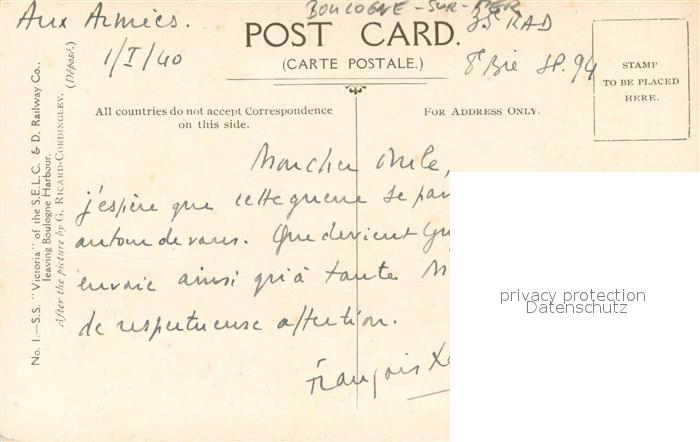 Aux Armées.
1/I/40
BOULOGNE-SUR-MER
35 RAD
8e Bie SP. 94
POST CARD.
(CARTE POSTALE.)
STAMP
TO BE PLACED
HERE.
All countries do not accept Correspondence
on this side.
FOR ADDRESS ONLY.
Mon cher oncle,
j'espère que cette guerre se
autour de vous. Que devient
envoie ainsi qu'à tante
de respectueuse affection.
François
No. 1.—S.S. "Victoria" of the S.E.L.C. & D. Railway Co.,
leaving Boulogne Harbour.
After the picture by G. RICARD-CORDINGLEY.
(Déposé.)
privacy protection
Datenschutz